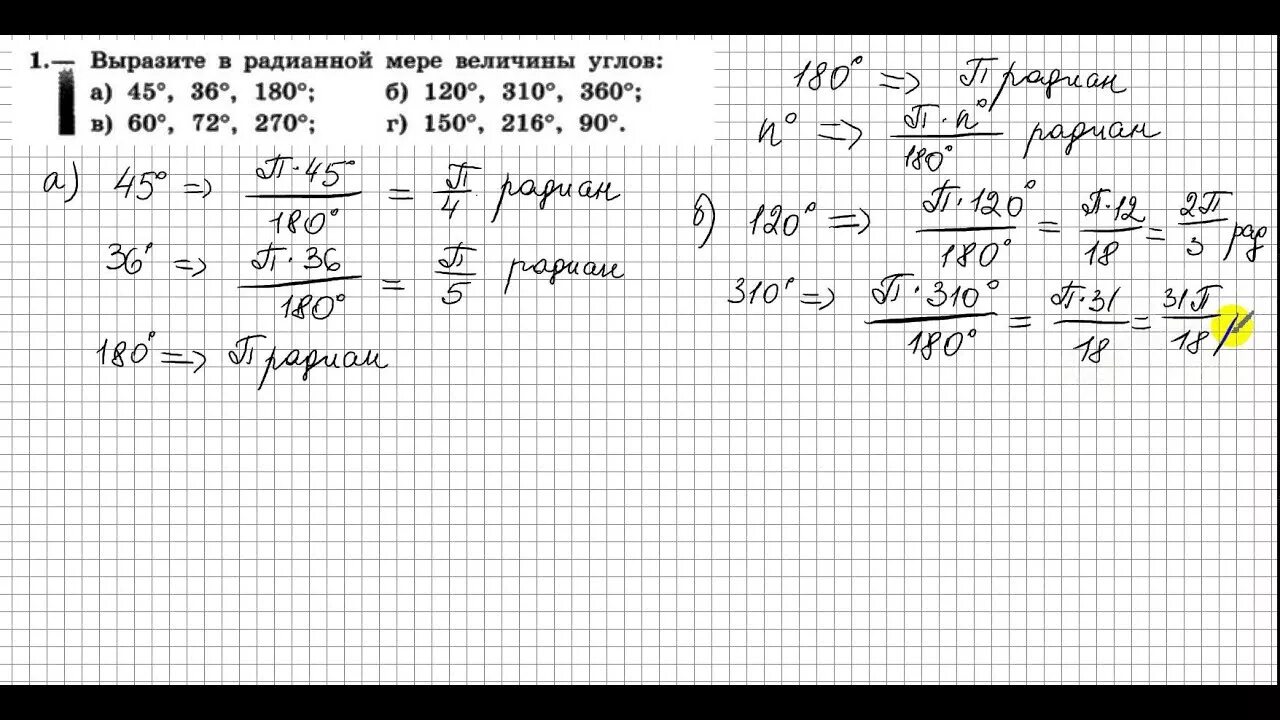 1.— Выразите в радианной мере величины углов:
а) 45°, 36°, 180°; б) 120°, 310°, 360°;
в) 60°, 72°, 270°; г) 150°, 216°, 90°.
180° => П радиан
n° => П·n°/180° радиан
а) 45° => П·45°/180° = П/4 радиан
36° => П·36/180° = П/5 радиан
180° => П радиан
б) 120° => П·120°/180° = П·12/18 = 2П/3 рад
310° => П·310°/180° = П·31/18 = 31П/18